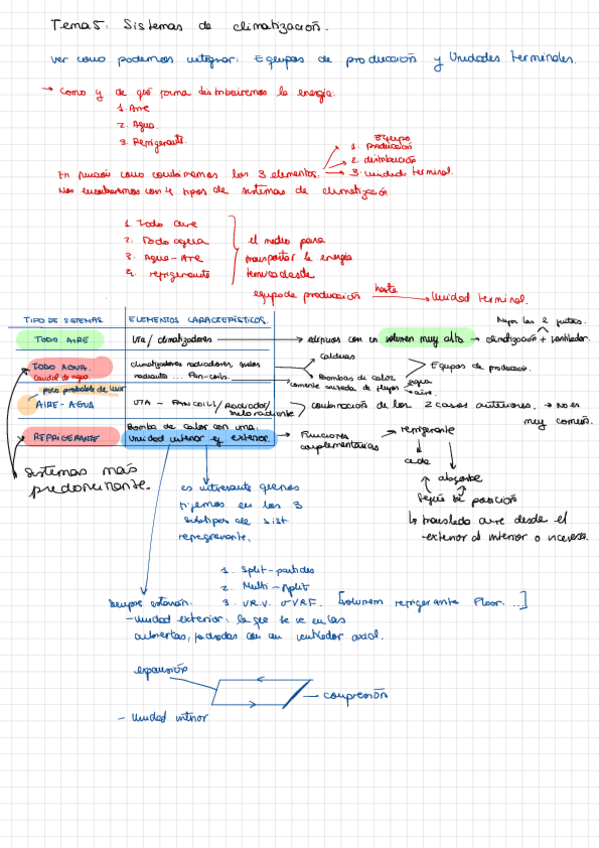 Tema 5: Sistemas de climatización.
ver como podemos integrar: Equipos de producción y Unidades terminales.
→ Como y de qué forma distribuiremos la energia.
1. Aire
2. Agua.
3. Refrigerante.
Equipo
1. producción
2. distribución
3. unidad terminal.
En función como combinemos los 3 elementos.
Nos encontramos con 4 tipos de sistemas de climatización
1. Todo aire
2. Todo agua
3. Agua-Aire
4. refrigerante
el medio para
transportar la energia
termica desde
equipo de producción hasta → Unidad terminal.
TIPO DE SISTEMAS ELEMENTOS CARACTERÍSTICOS.
TODO AIRE UTA / climatizadores → edificios con un volumen muy alto → climatización + ventilador.
las 2 juntas.
TODO AGUA. climatizadores radiadores suelos
Caudal de agua radiante ... Fan-coils.
Calderas
Bombas de calor
Equipos de produccion.
agua
aire.
poco probable de usar
AIRE-AGUA UTA - FANCOILS / Radiador / suelo radiante
combinación de los 2 casos anteriores. → no es
muy común.
REFRIGERANTE Bomba de calor con una.
Unidad interior y exterior.
→ Funciones
complementarias
refrigerante
cede
absorbe
según su posición
↳ translada aire desde el
exterior al interior o inversa.
Sistemas más
predominante.
es interesante que nos
fijemos en los 3
subtipos de sist
refrigerante.
1. Split-partidos
2. Multi-Split
3. V.R.V. o VRF. [volumen refrigerante Floor...]
Siempre estarán.
- Unidad exterior: la que se ve en las
cubiertas, fachadas con un ventilador axial.
expansión
compresión
- Unidad interior